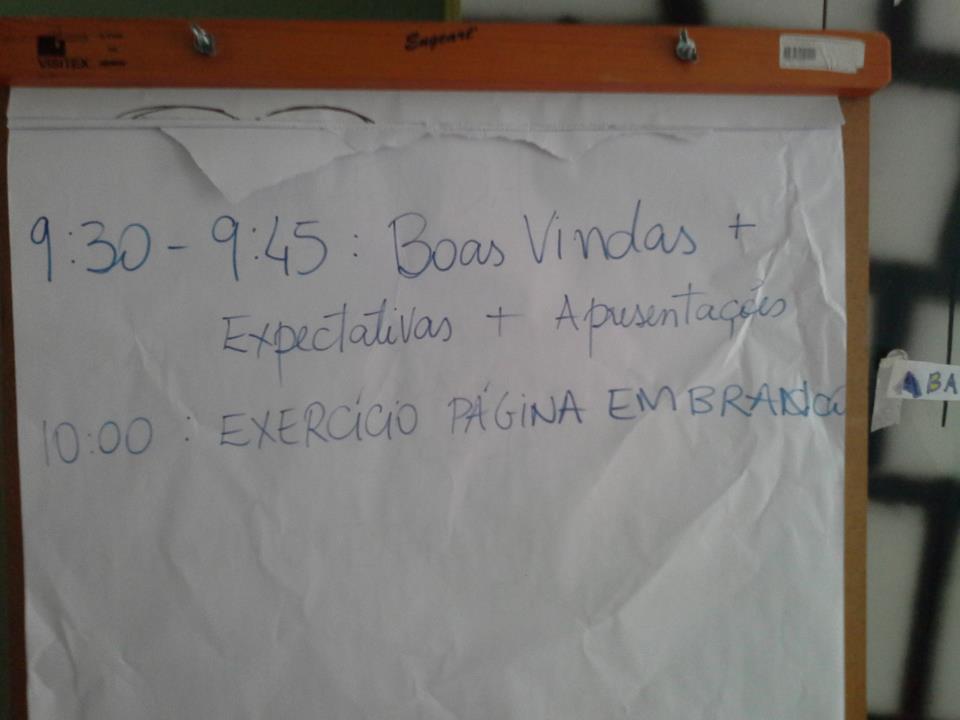 VISITEX
Engeart
9:30 - 9:45 : Boas Vindas +
Expectativas + Apresentações
10:00 : EXERCÍCIO PÁGINA EM BRANCO
ABA